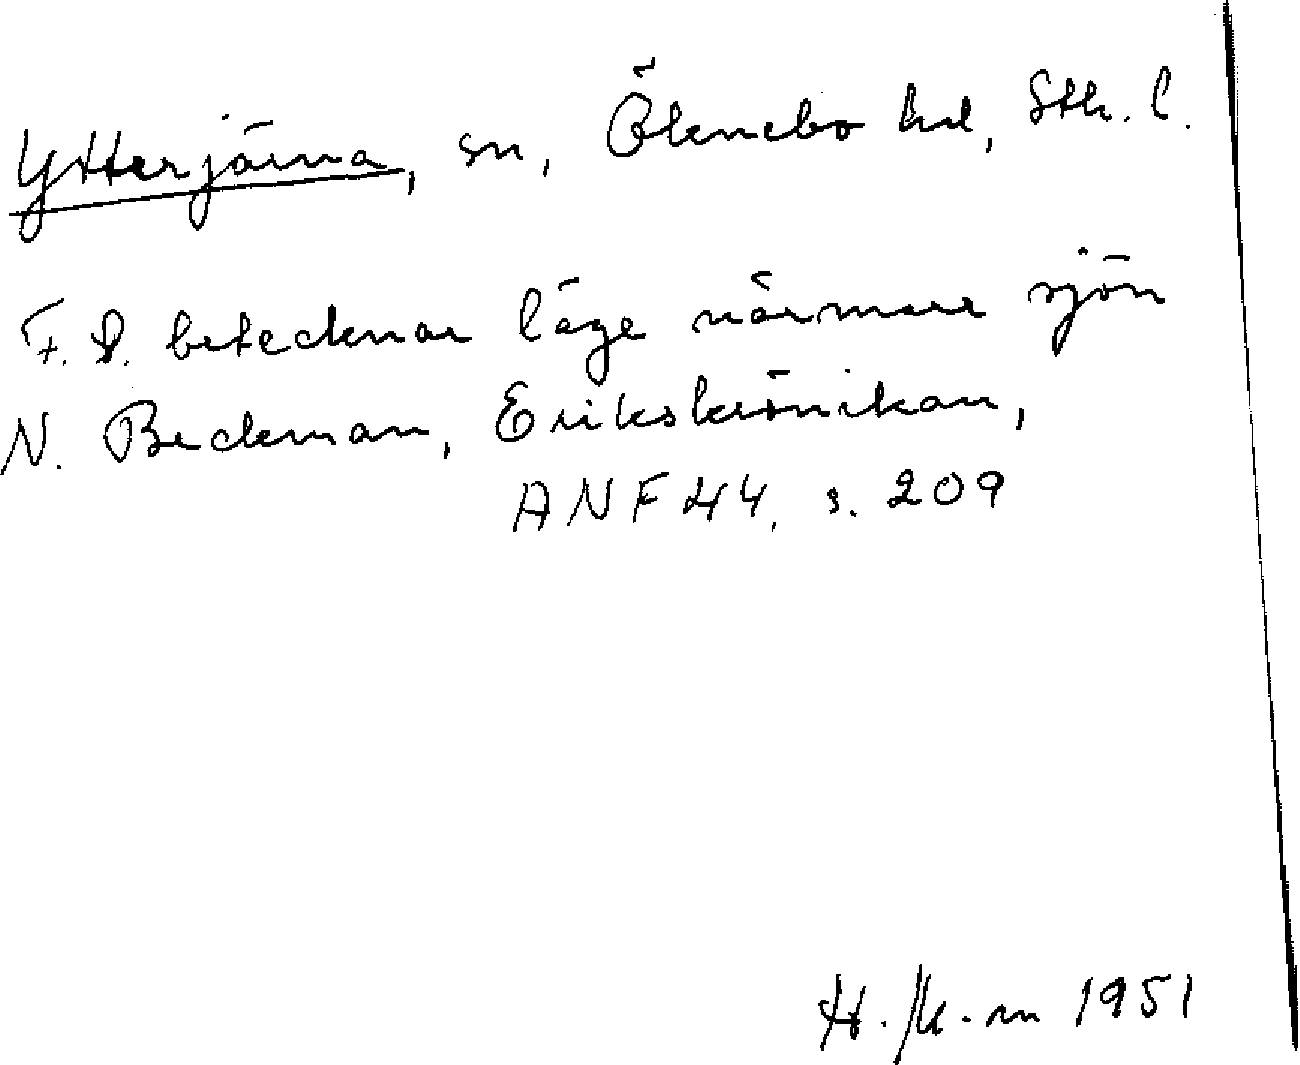 Ytterjärna, sn, Öknebo hd, Sth. l.
F. l. betecknar läge närmare sjön
N. Beckman, Erikskrönikan,
ANF 44, s. 209
H. /K-m 1951